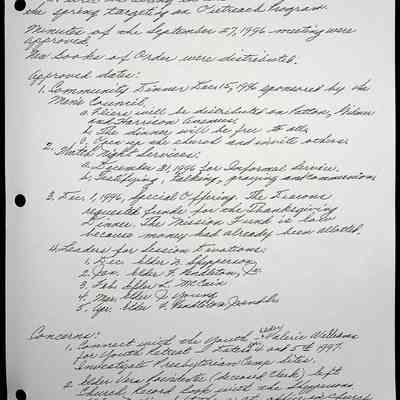 the spring targeting an Outreach Program.
Minutes of the September 27, 1996 meeting were
approved.
New books of Order were distributed.
Approved dates:
1. Community Dinner Dec 15, 1996 sponsored by the
Men's Council.
a. Fliers will be distributed on Patton,
and Harrison Avenues,
b. The dinner will be free to all,
c. Open up the church and invite others.
2. Watch Night Services:
a. December 31, 1996 for Informal Service.
b. Testifying, talking, praying and communion,
3. Dec 1, 1996, Special Offering. The Deacons
requested funds for the Thanksgiving
Dinner. The Mission Fund is low
because money had already been allotted.
4. Leaders for Session Devotions:
1. Dec. Elder N.
2. Jan. Elder F. Pendleton, Jr.
3. Feb. Elder L. McCain
4. Mar. Elder J. Young
5. Apr. Elder F. Pendleton,
Concerns:
1. Connect with the Youth Leader Valerie Williams
for Youth Retreat 4 and 5th 1997.
Investigate Presbyterian Camp sites.
2. Elder Vera (deceased Clerk) left
Church Record Book with the